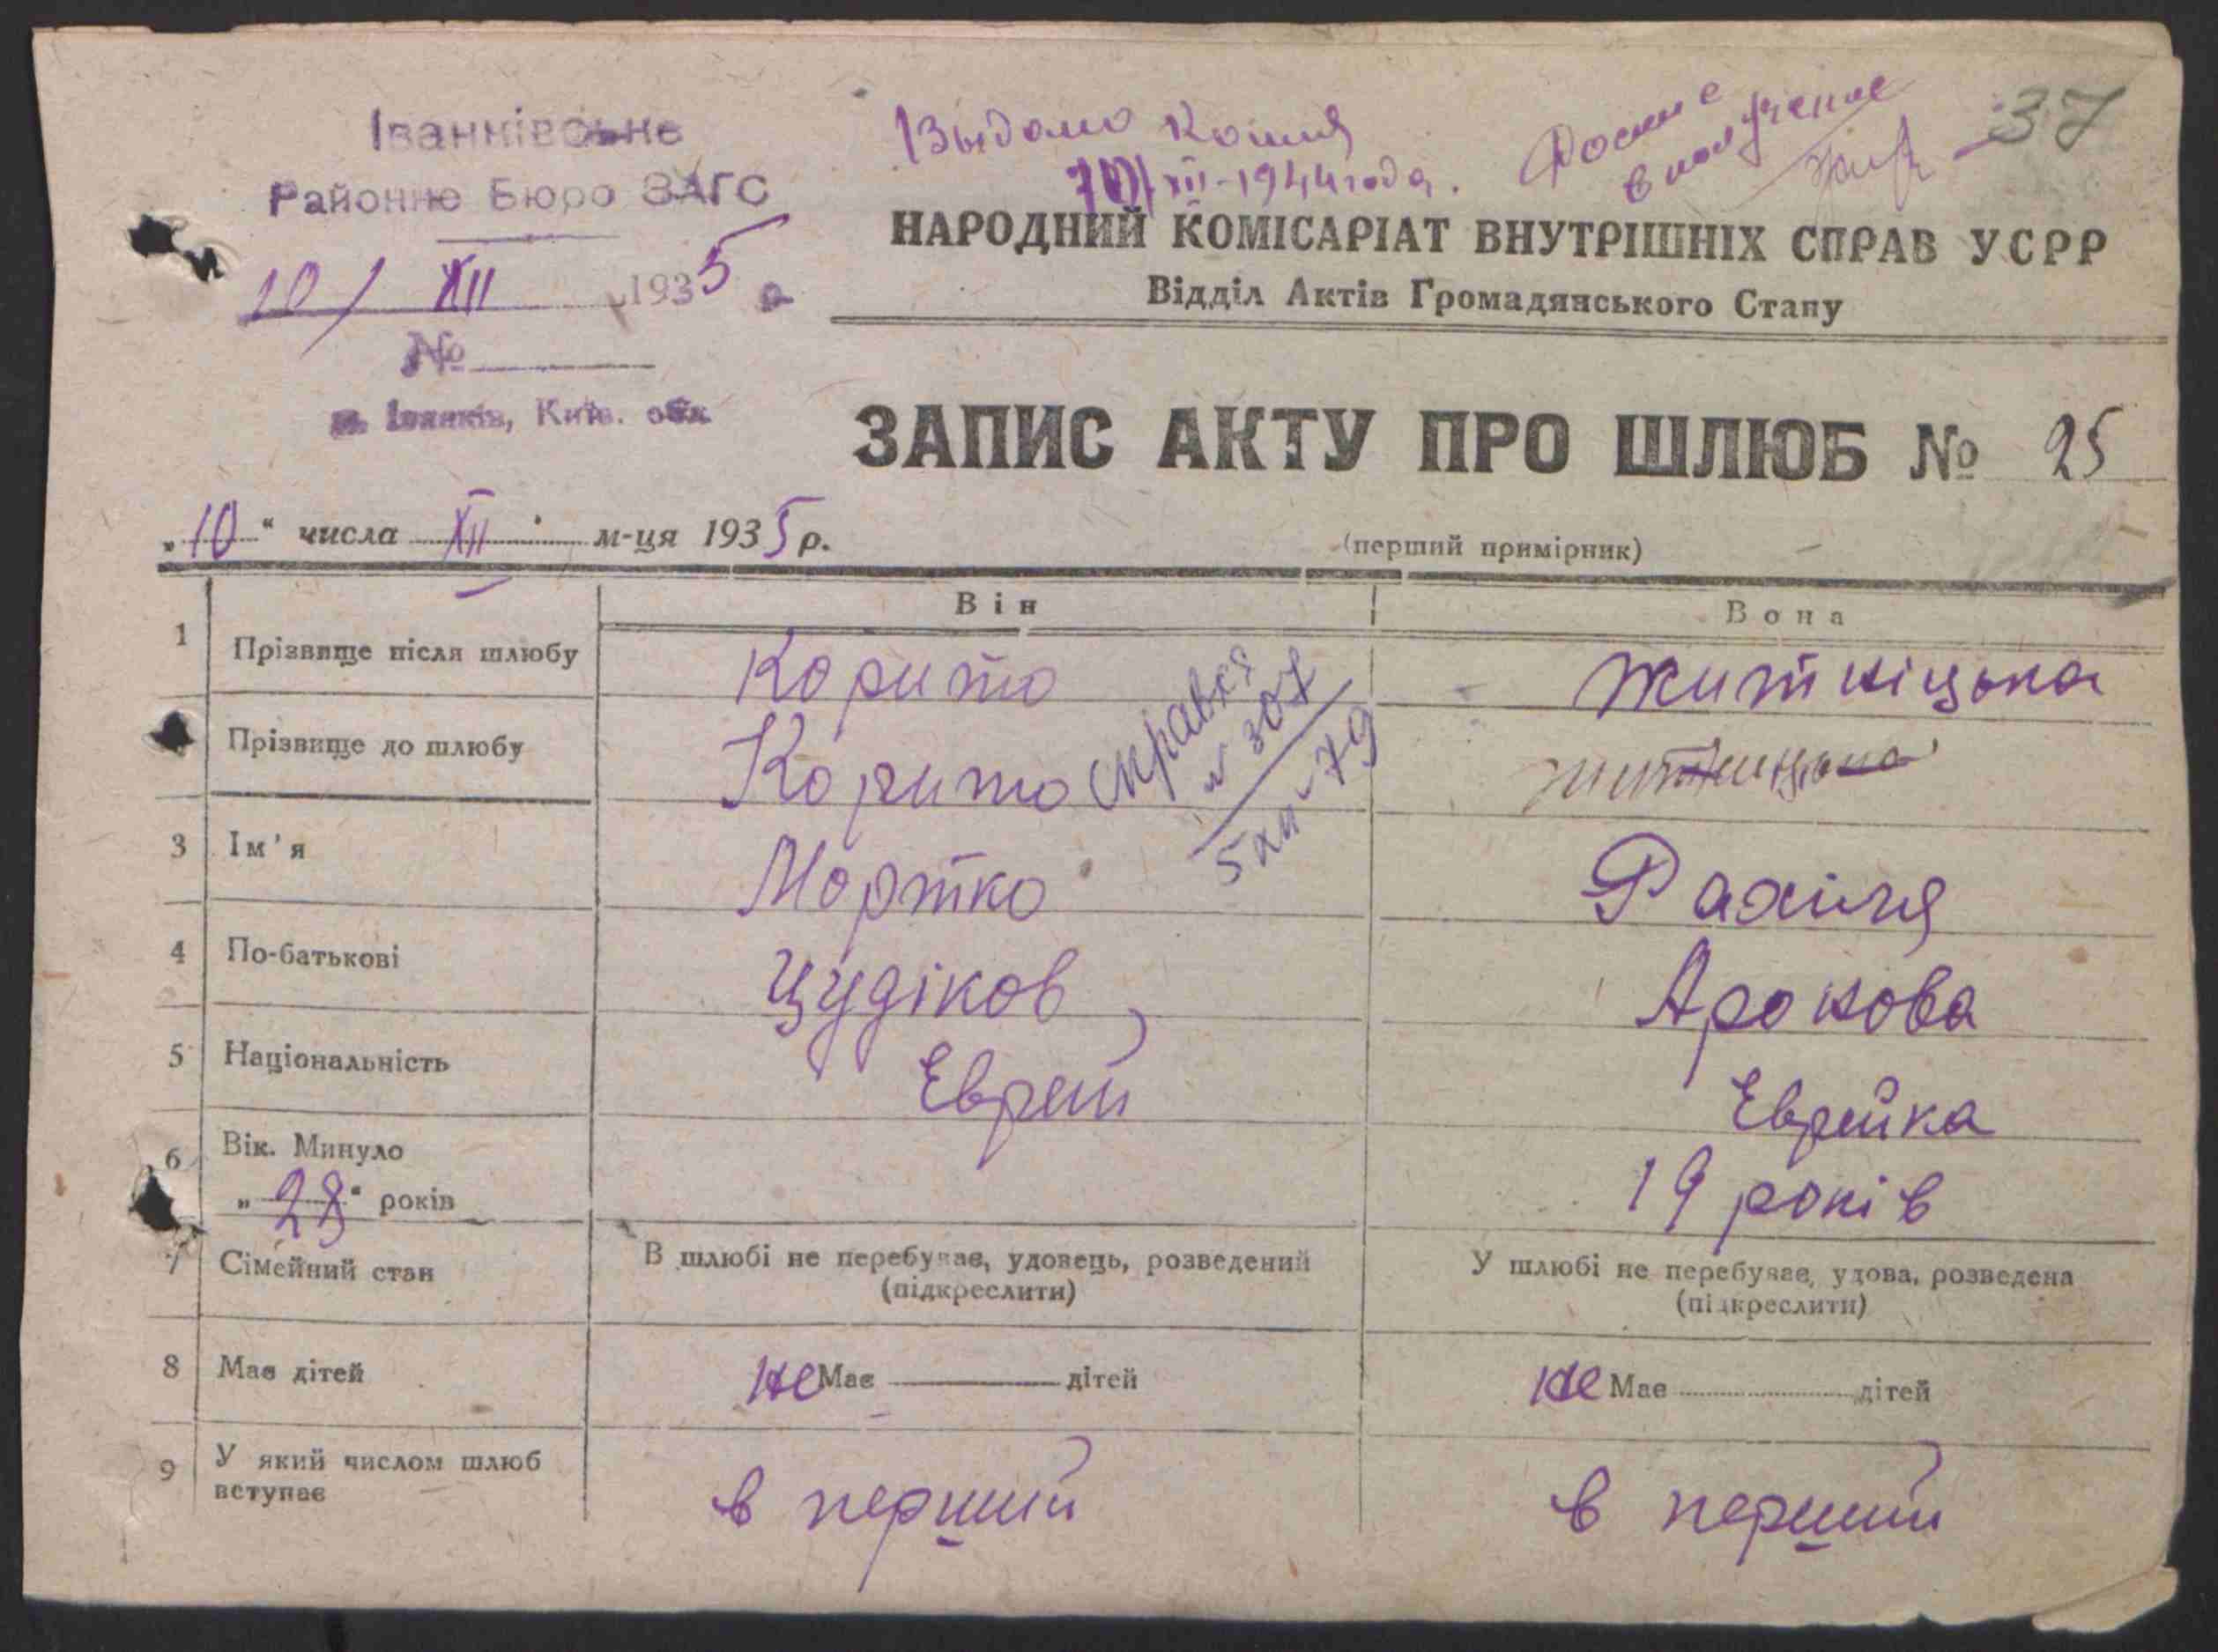 Іванківське
Районне Бюро ЗАГС
10/ XII 1935 р
№
м. Іванків, Київ. обл.
Выдано копия
XII-1944 года.
в получение
37
НАРОДНИЙ КОМІСАРІАТ ВНУТРІШНІХ СПРАВ УСРР
Відділ Актів Громадянського Стану
ЗАПИС АКТУ ПРО ШЛЮБ № 25
„10“ числа XII м-ця 1935 р.
(перший примірник)
Він
Вона
1 Прізвище після шлюбу Корито Житницька
Прізвище до шлюбу Корито Житницька
справка
№ 307
5 XII-79
3 Ім'я Мортко Рахиля
4 По-батькові Цудіков Аронова
5 Національність Еврей Еврейка
6 Вік. Минуло
„28“ років 19 років
7 Сімейний стан В шлюбі не перебуває, удовець, розведений У шлюбі не перебуває, удова, розведена
(підкреслити) (підкреслити)
8 Має дітей не Має дітей не Має дітей
9 У який числом шлюб
вступає в перший в перший